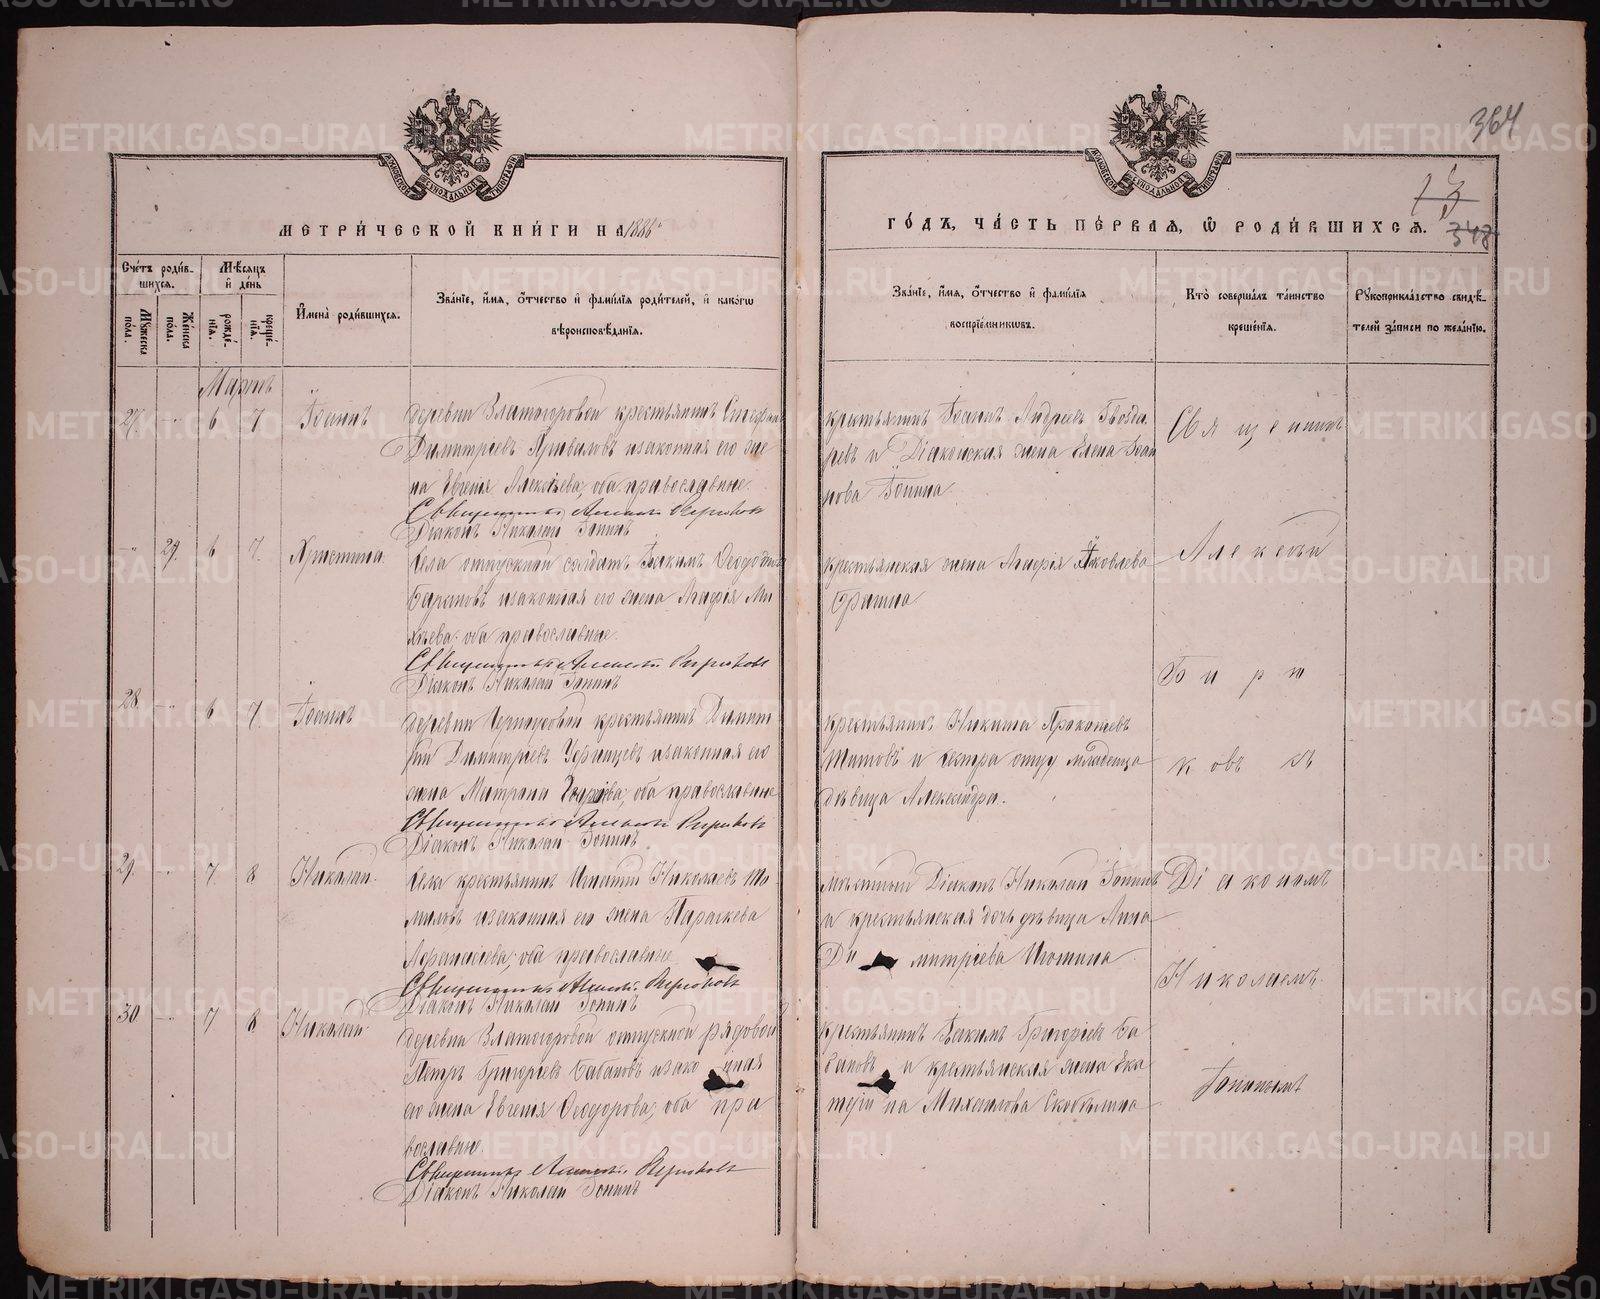 364
13
348
МЕТРИ́ЧЕСКОЙ КНИ́ГИ НА 1886й
ГО́ДЪ, ЧА́СТЬ ПЕ́РВАѦ, Ѡ҆ РОДИ́ВШИХСѦ.
Сче́тъ роди́в-
шихсѧ.
Мꙋжеска по́ла.
Же́нска по́ла.
Мѣ́сѧцъ и҆ де́нь
рожде́-нїѧ.
креще́-нїѧ.
И҆мена̀ роди́вшихсѧ.
Зва́нїе, и҆́мѧ, ѻ҆́тчество и҆ фами́лїѧ роди́телей, и҆ како́гѡ
вѣроисповѣ́данїѧ.
Зва́нїе, и҆́мѧ, ѻ҆́тчество и҆ фами́лїѧ
воспрїе́мникѡвъ.
Кто̀ соверша́лъ та́инство
креще́нїѧ.
Рꙋкоприкла́дство свидѣ́-
телей за́писи по жела́нїю.
Мартъ
27. 6 7 Іоаннъ
деревни Златогоровой крестьянинъ Стефанъ
Димитріевъ Приваловъ изаконная его же
на Евгенія Алексѣева, оба православные.
Священникъ Алексѣй Бирюковъ
Діаконъ Николай Іонинъ
крестьянинъ Іоаннъ Андреевъ Гвозда
ревъ и Діаконская жена Елена Іоан
нова Іонина
29. 6 7. Христина.
села отпускной солдатъ Іоакимъ Ѳеодоровъ
Барановъ изаконная его жена Агафія Ми
хѣева; оба православные.
Священникъ Алексѣй Бирюковъ
Діаконъ Николай Іонинъ
крестьянская жена Агафія Яковлева
28 6 7. Іоаннъ
деревни Черноусовой крестьянинъ Димит
рій Димитріевъ изаконная его
жена Матрона оба православные
Священникъ Алексѣй Бирюковъ
Діаконъ Николай Іонинъ
крестьянинъ Никита Прокопьевъ
Титовъ и сестра отцу младенца
дѣвица Александра.
29. 7. 8 Николай.
села крестьянинъ Игнатій Николаевъ То
миловъ изаконная его жена Параскева
Афанасіева; оба православные
Священникъ Алексѣй Бирюковъ
Діаконъ Николай Іонинъ
мѣстный Діаконъ Николай Іонинъ
и крестьянская дочь дѣвица Анна
Ди митріева Игошина
30 7 8 Николай.
деревни Златогоровой отпускной рядовой
Петръ Григорьевъ Бабановъ изако нная
его жена Евгенія Ѳеодорова; оба пра
вославные.
Священникъ Алексѣй Бирюковъ
Діаконъ Николай Іонинъ
крестьянинъ Іоакимъ Григоріевъ Ба
бановъ и крестьянская жена Ека
тери на Михаилова Скобѣлина
Священникъ
Алексѣй
Бирю
ковъ съ
Діакономъ
Николаемъ
Іонинымъ
METRIKI.GASO-URAL.RU